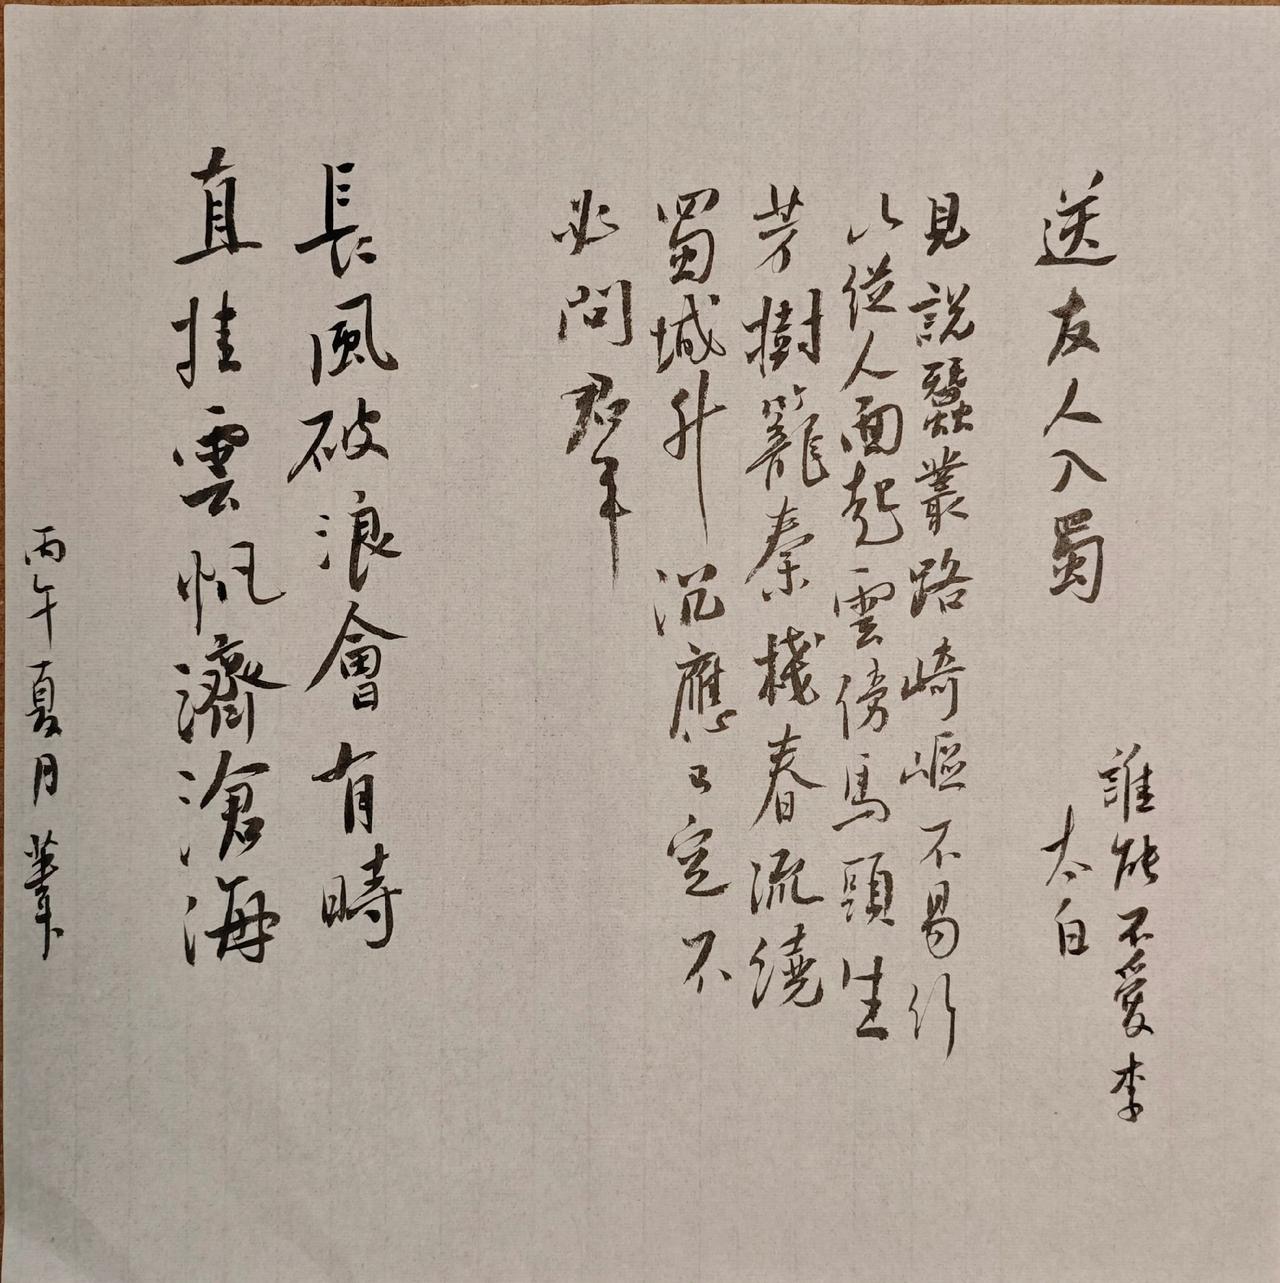 送友人入蜀
誰能不愛李
太白
見說蠶叢路崎嶇不易行
山從人面起雲傍馬頭生
芳樹籠秦棧春流繞
蜀城升沉應已定不
必問君平
長風破浪會有時
直挂雲帆濟滄海
丙午夏月筆